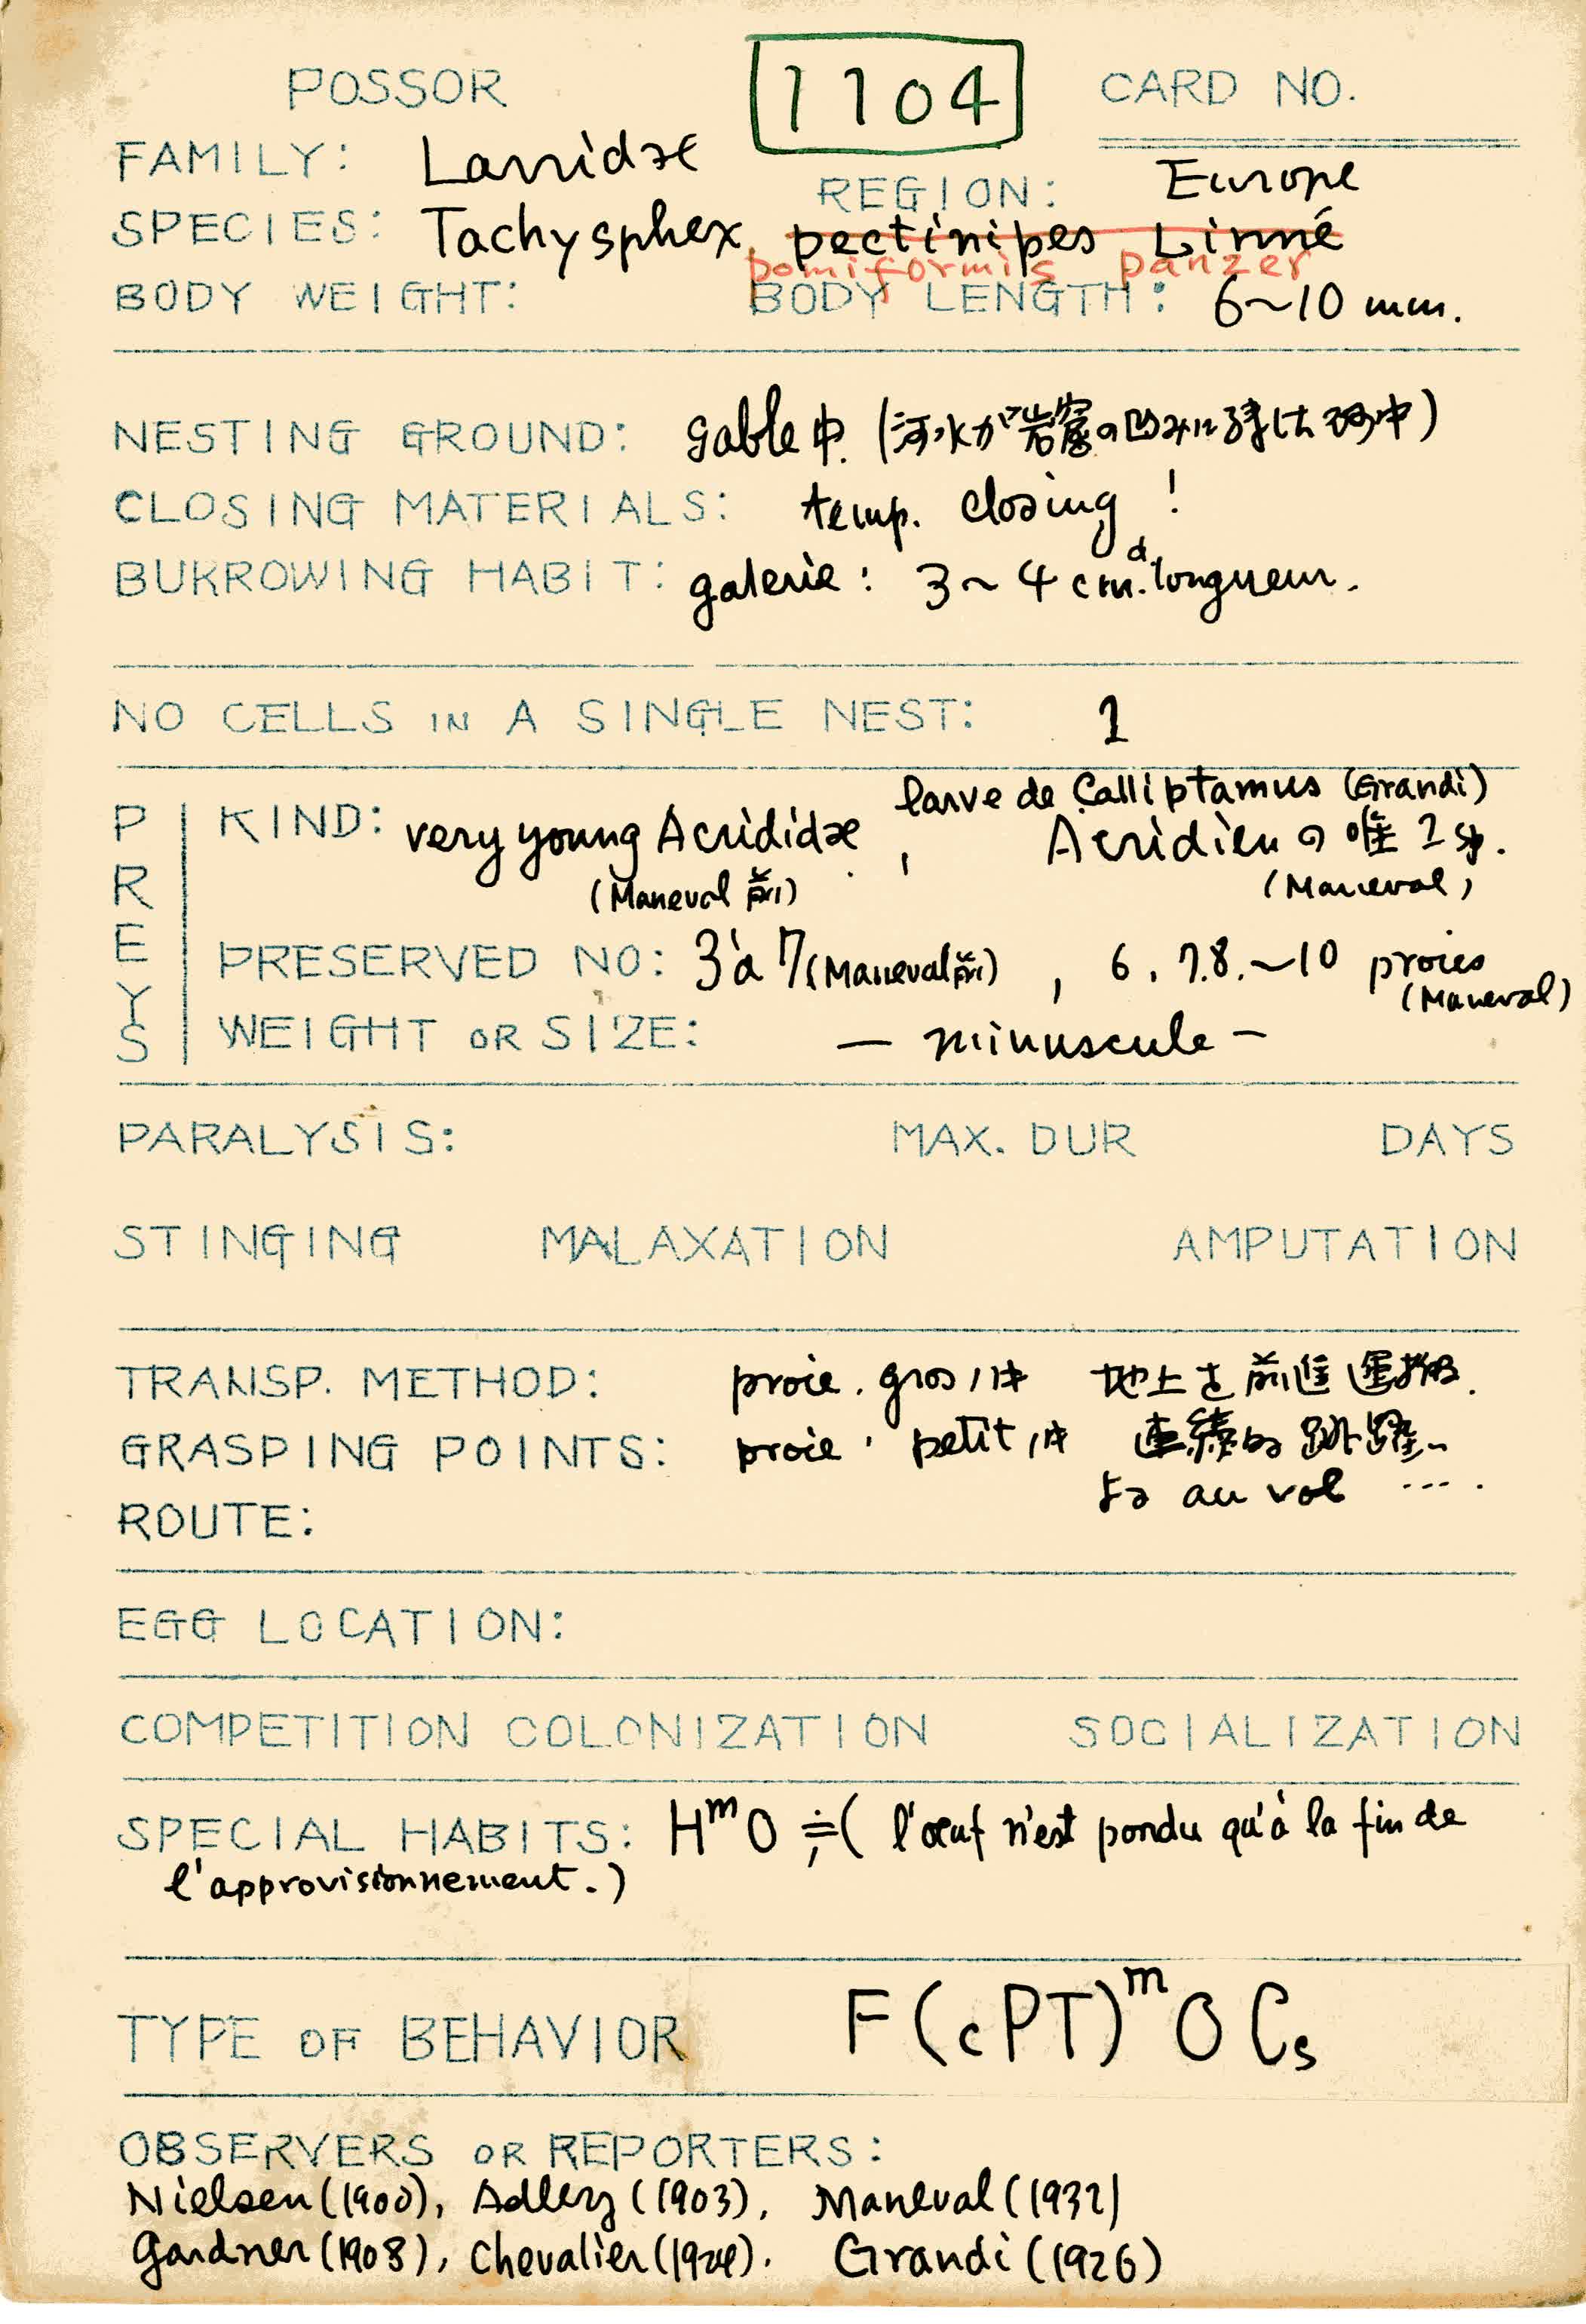 POSSOR 1104 CARD NO.
FAMILY: Larridae
REGION: Europe
SPECIES: Tachysphex pectinipes Linné
pompiliformis panzer
BODY WEIGHT: BODY LENGTH: 6~10 mm.
NESTING GROUND: sable中. (河水が岩窪の凹みに残した砂中)
CLOSING MATERIALS: temp. closing !
BUKROWING HABIT: galerie: 3~4 cm. d. longueur.
NO CELLS IN A SINGLE NEST: 1
PREYS
larve de Calliptamus (Grandi)
KIND: very young Acrididae, Acridien の唯1sp.
(Maneval前) (Maneval)
PRESERVED NO: 3 à 7 (Maneval前), 6.7.8.~10 proies
(Maneval)
WEIGHT OR SIZE: — minuscule —
PARALYSIS: MAX. DUR DAYS
STINGING MALAXATION AMPUTATION
TRANSP. METHOD: proie. gros ハ 地上を前進運搬.
GRASPING POINTS: proie. petit ハ 連続的跳躍
au vol ....
ROUTE:
EGG LOCATION:
COMPETITION COLONIZATION SOCIALIZATION
SPECIAL HABITS: HᵐO ≒ ( l'œuf n'est pondu qu'à la fin de
l'approvisionnement.)
TYPE OF BEHAVIOR F(cPT)ᵐOCs
OBSERVERS OR REPORTERS:
Nielsen (1900), Adlerz (1903), Maneval (1932)
Gardner (1908), Chevalier (1924). Grandi (1926)